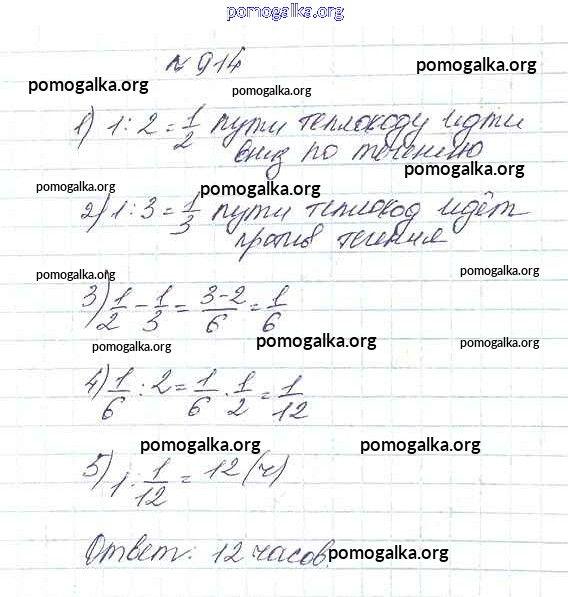 pomogalka.org
№ 914
pomogalka.org pomogalka.org pomogalka.org
1) 1 : 2 = 1/2 пути теплоходу идти
вниз по течению
pomogalka.org pomogalka.org pomogalka.org
2) 1 : 3 = 1/3 пути теплоход идёт
против течения
pomogalka.org pomogalka.org
3) 1/2 - 1/3 = 3-2/6 = 1/6
pomogalka.org pomogalka.org pomogalka.org
4) 1/6 : 2 = 1/6 · 1/2 = 1/12
pomogalka.org pomogalka.org
5) 1 : 1/12 = 12 (ч)
Ответ: 12 часов. pomogalka.org